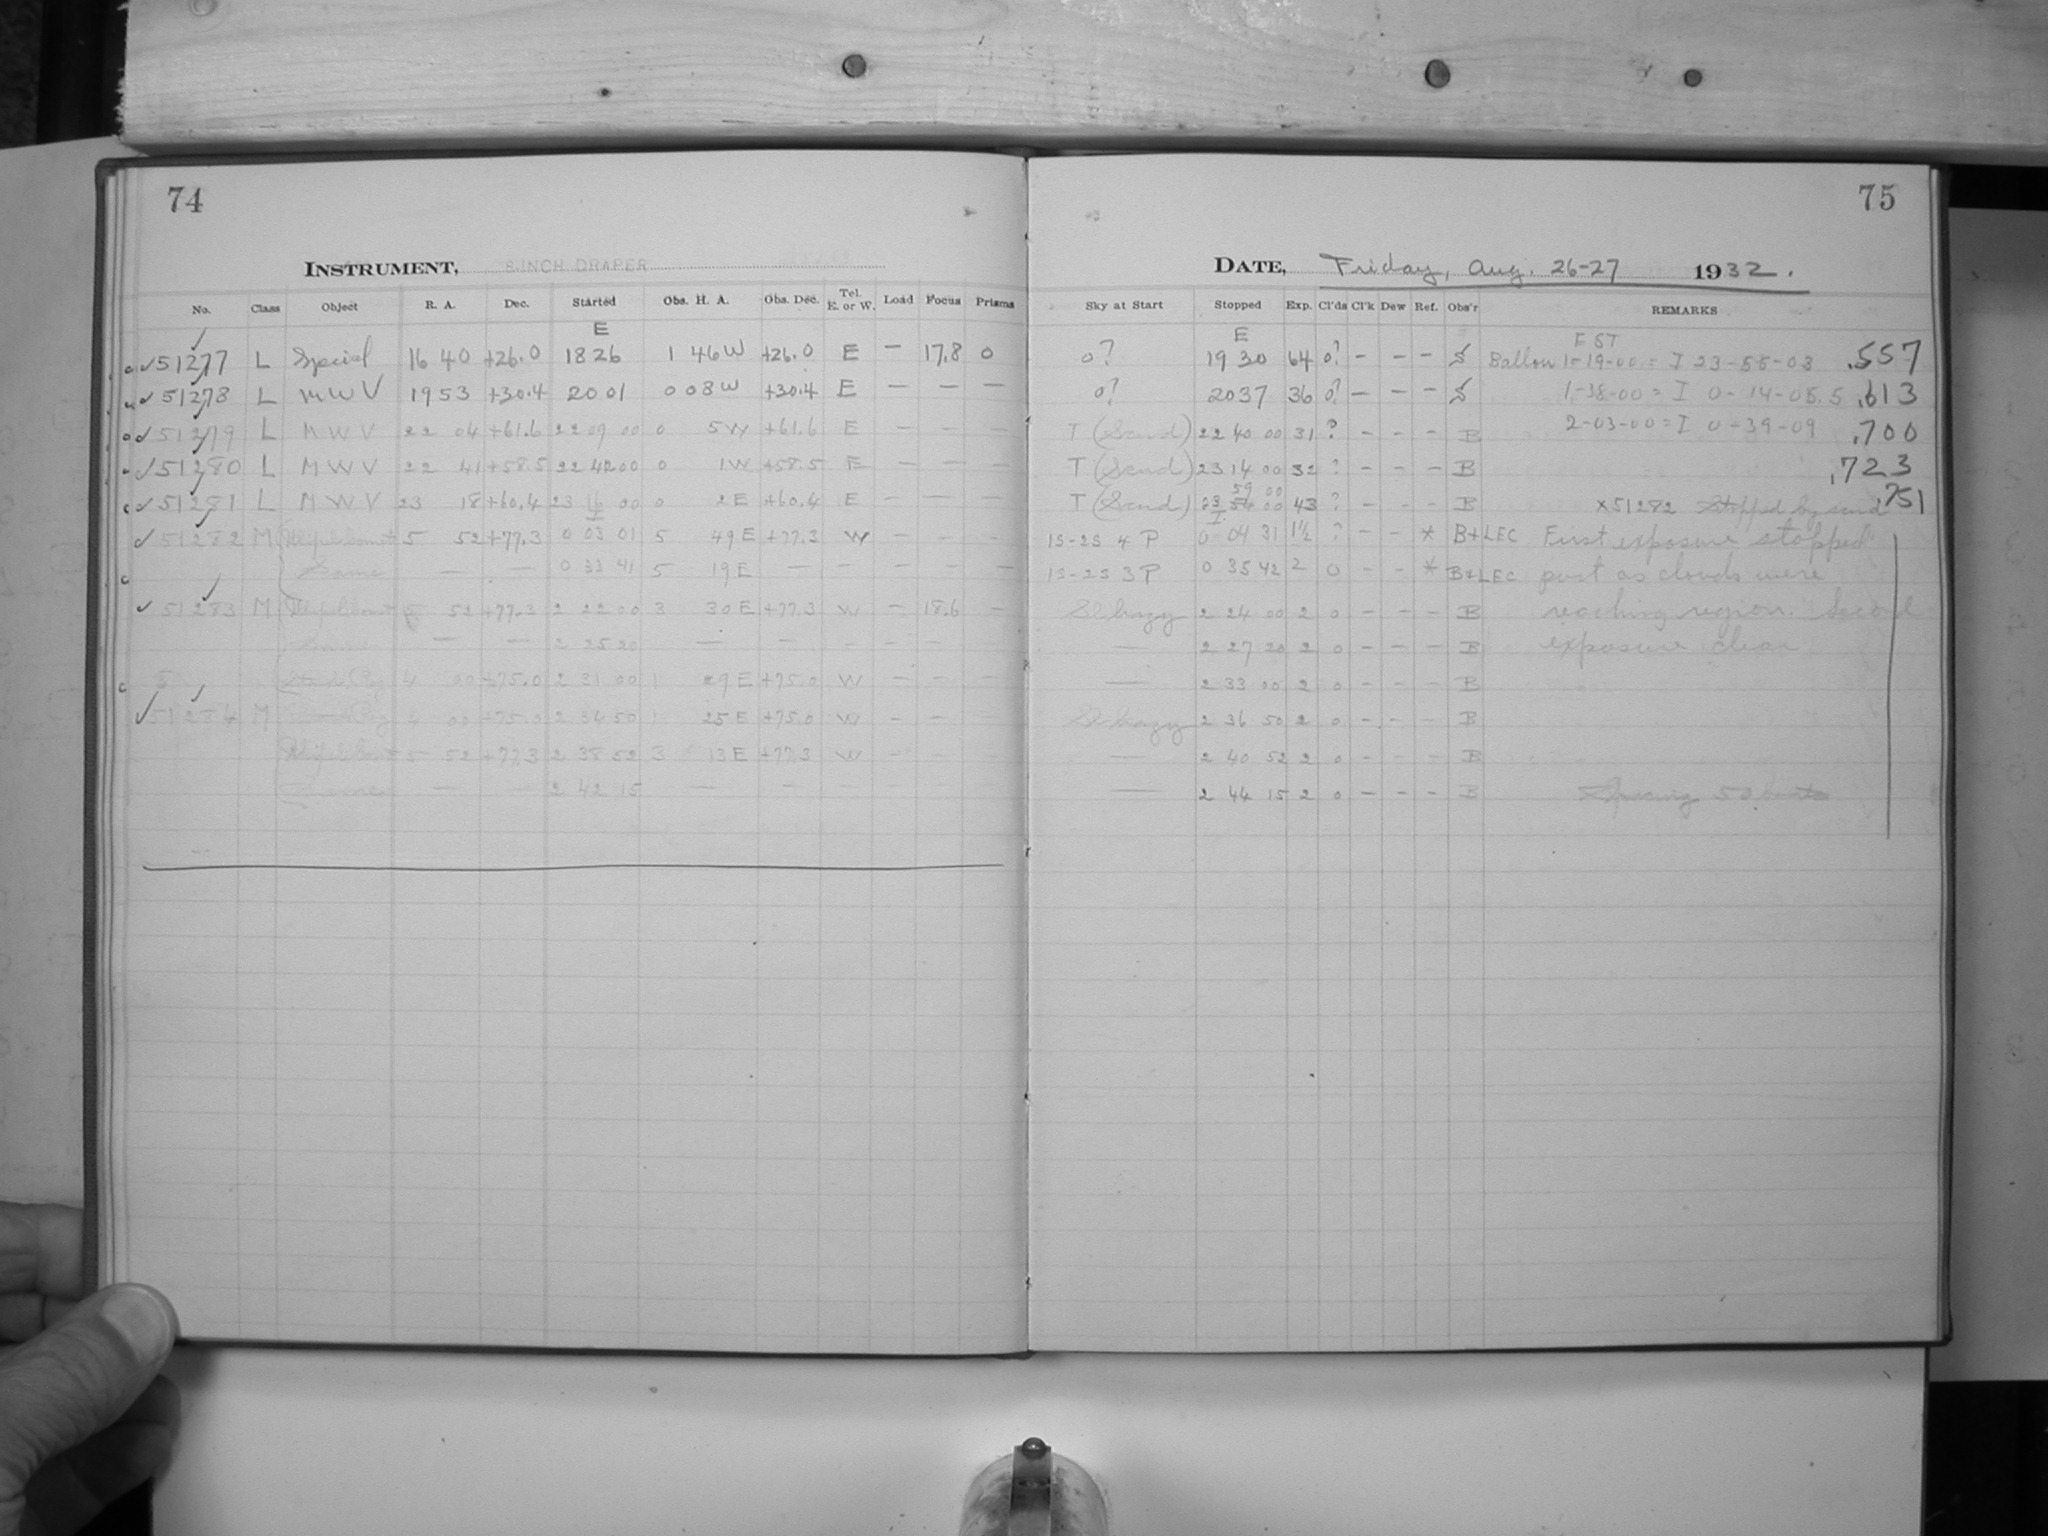 74
INSTRUMENT, 8 INCH DRAPER
No. Class Object R. A. Dec. Started Obs. H. A. Obs. Dec. Tel. E. or W. Load Focus Prisms
E
✓51277 L Special 16 40 +26.0 18 26 1 46 W +26.0 E — 17.8 0
✓51278 L MWV 19 53 +30.4 20 01 0 08 W +30.4 E — — —
✓51279 L MWV 22 04 +61.6 22 09 00 0 5 W +61.6 E — — —
✓51280 L MWV 22 41 +58.5 22 42 00 0 1 W +58.5 E — — —
✓51281 L MWV 23 18 +60.4 23 16 00 0 2 E +60.4 E — — —
I
✓51282 M 5 52 +77.3 0 03 01 5 49 E +77.3 W — — —
Same — — 0 33 41 5 19 E — — — — —
✓51283 M 5 52 +77.3 2 22 00 3 30 E +77.3 W — 18.6 —
Same — — 2 25 20 — — — — — —
4 00 +75.0 2 31 00 1 29 E +75.0 W — — —
✓51284 M 4 00 +75.0 2 34 50 1 25 E +75.0 W — — —
5 52 +77.3 2 38 52 3 13 E +77.3 W — — —
Same — — 2 42 15 — — — — — —
75
DATE, Friday, Aug. 26-27 1932.
Sky at Start Stopped Exp. Cl'ds Cl'k Dew Ref. Obs'r REMARKS
E EST
0? 19 30 64 0? — — — S Ballou 1-19-00 = I 23-55-03 .557
0? 20 37 36 0? — — — S 1-38-00 = I 0-14-05.5 .613
T (Sand) 22 40 00 31 ? — — — B 2-03-00 = I 0-39-09 .700
T (Sand) 23 14 00 32 ? — — — B .723
59 00
T (Sand) 23 54 00 43 ? — — — B x51282 Stopped by sand .751
I
1S-2S 4 P 0 04 31 1½ ? — — * B+LEC First exposure stopped
1S-2S 3 P 0 35 42 2 0 — — * B+LEC just as clouds were
Sl hazy 2 24 00 2 0 — — — B reaching region. Second
— 2 27 20 2 0 — — — B exposure clear
— 2 33 00 2 0 — — — B
Sl hazy 2 36 50 2 0 — — — B
— 2 40 52 2 0 — — — B
— 2 44 15 2 0 — — — B Spacing 50